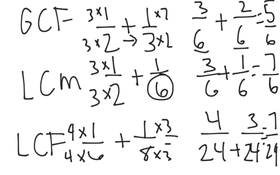 GCF 3×1/3×2 + 1×2/3×2 → 3/6 + 2/6 = 5/6
LCM 3×1/3×2 + 1/6 3/6 + 1/6 = 7/6
LCF 4×1/4×6 + 1×3/8×3 4/24 + 3/24 = 7/24